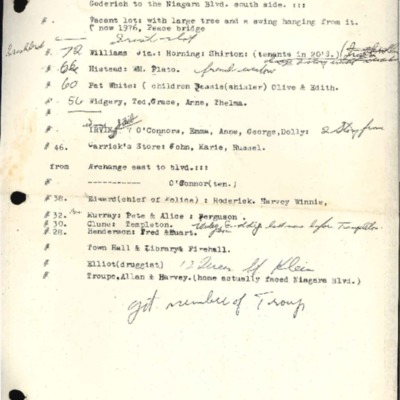 Goderich to the Niagara Blvd. south side. :::
#. Vacent lot: with large tree and a swing hanging from it.
( now 1976, Peace bridge
# 72 Williams Jim.: Horning: Shirton: (tenants in 20's.)
# 66 Histead: Wm. Plato. frame
# 60 Pat White: ( children Jessie(Ansler) Olive & Edith.
# 56 Widgery, Ted, Grace, Anne, Thelma.
O'Connors, Emma, Anne, George, Dolly: 2 Story frame
# 46. Warrick's Store: John, Marie, Russel.
from Archange east to blvd.::::
# ---------- O'Connor(ten.)
#38. Edward(chief of police) : Roderick. Harvey Winnie,
#32. Murray: Pete & Alice : Ferguson
# 30. Clune: Templeton. before Templeton
# 28. Henderson: Fred & Stuart.
Town Hall & Library: Firehall.
Elliot(druggist) 12 Queen St Klein
Troup, Allan & Harvey. (home actually faced Niagara Blvd.)
get number of Troup